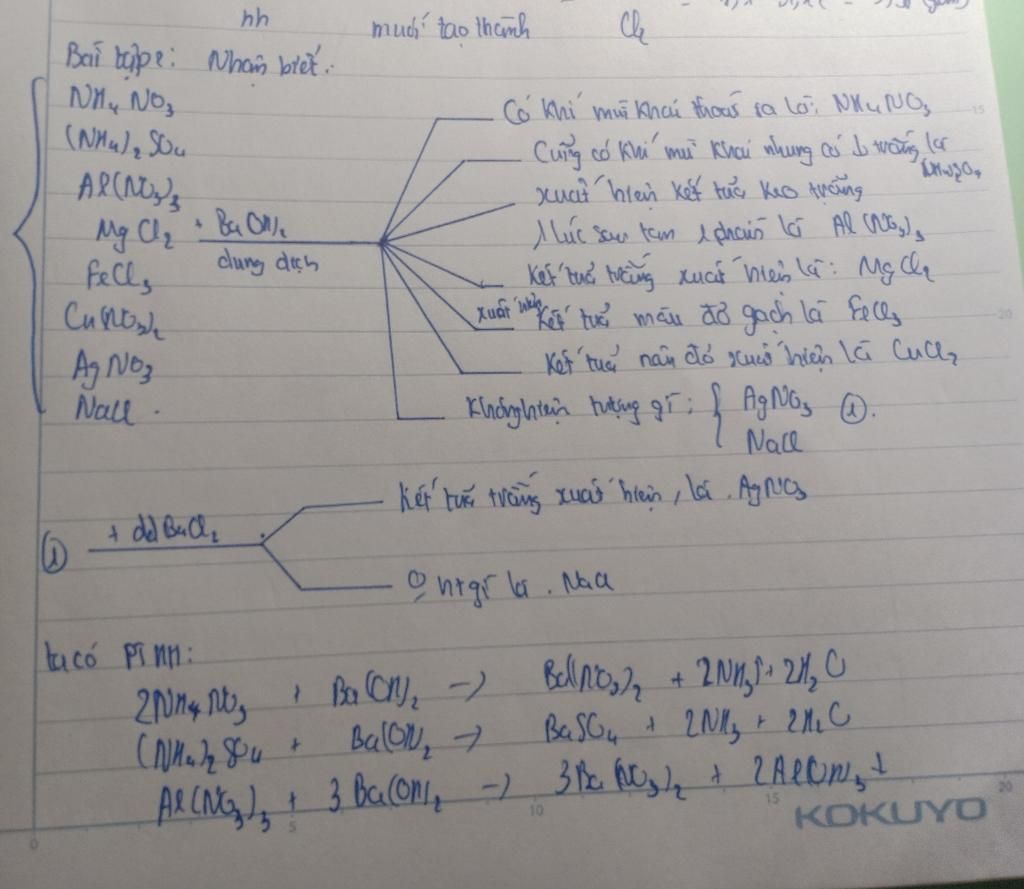 hh muối tạo thành Cl2
Bài tập 2: Nhận biết.
NH4NO3
(NH4)2SO4
Al(NO3)3
MgCl2
FeCl3
Cu(NO3)2
AgNO3
NaCl.
+ Ba(OH)2
dung dịch
Có khí mùi khai thoát ra là: NH4NO3
Cũng có khí mùi khai nhưng có ↓ trắng là (NH4)2SO4
xuất hiện kết tủa keo trắng
1 lúc sau tan 1 phần là Al(NO3)3
Kết tủa trắng xuất hiện là: MgCl2
xuất hiện kết tủa màu đỏ gạch là FeCl3
Kết tủa xuất hiện là CuCl2
Không hiện tượng gì: { AgNO3 ①.
NaCl
① + dd BaCl2
Kết tủa trắng xuất hiện, là AgNO3
htgì là. NaCl
ta có PTHH:
2NH4NO3 + Ba(OH)2 → Ba(NO3)2 + 2NH3↑ + 2H2O
(NH4)2SO4 + Ba(OH)2 → BaSO4 + 2NH3 + 2H2O
Al(NO3)3 + 3Ba(OH)2 → 3Ba(NO3)2 + 2Al(OH)3↓
0 5 10 15 20
15
20
KOKUYO